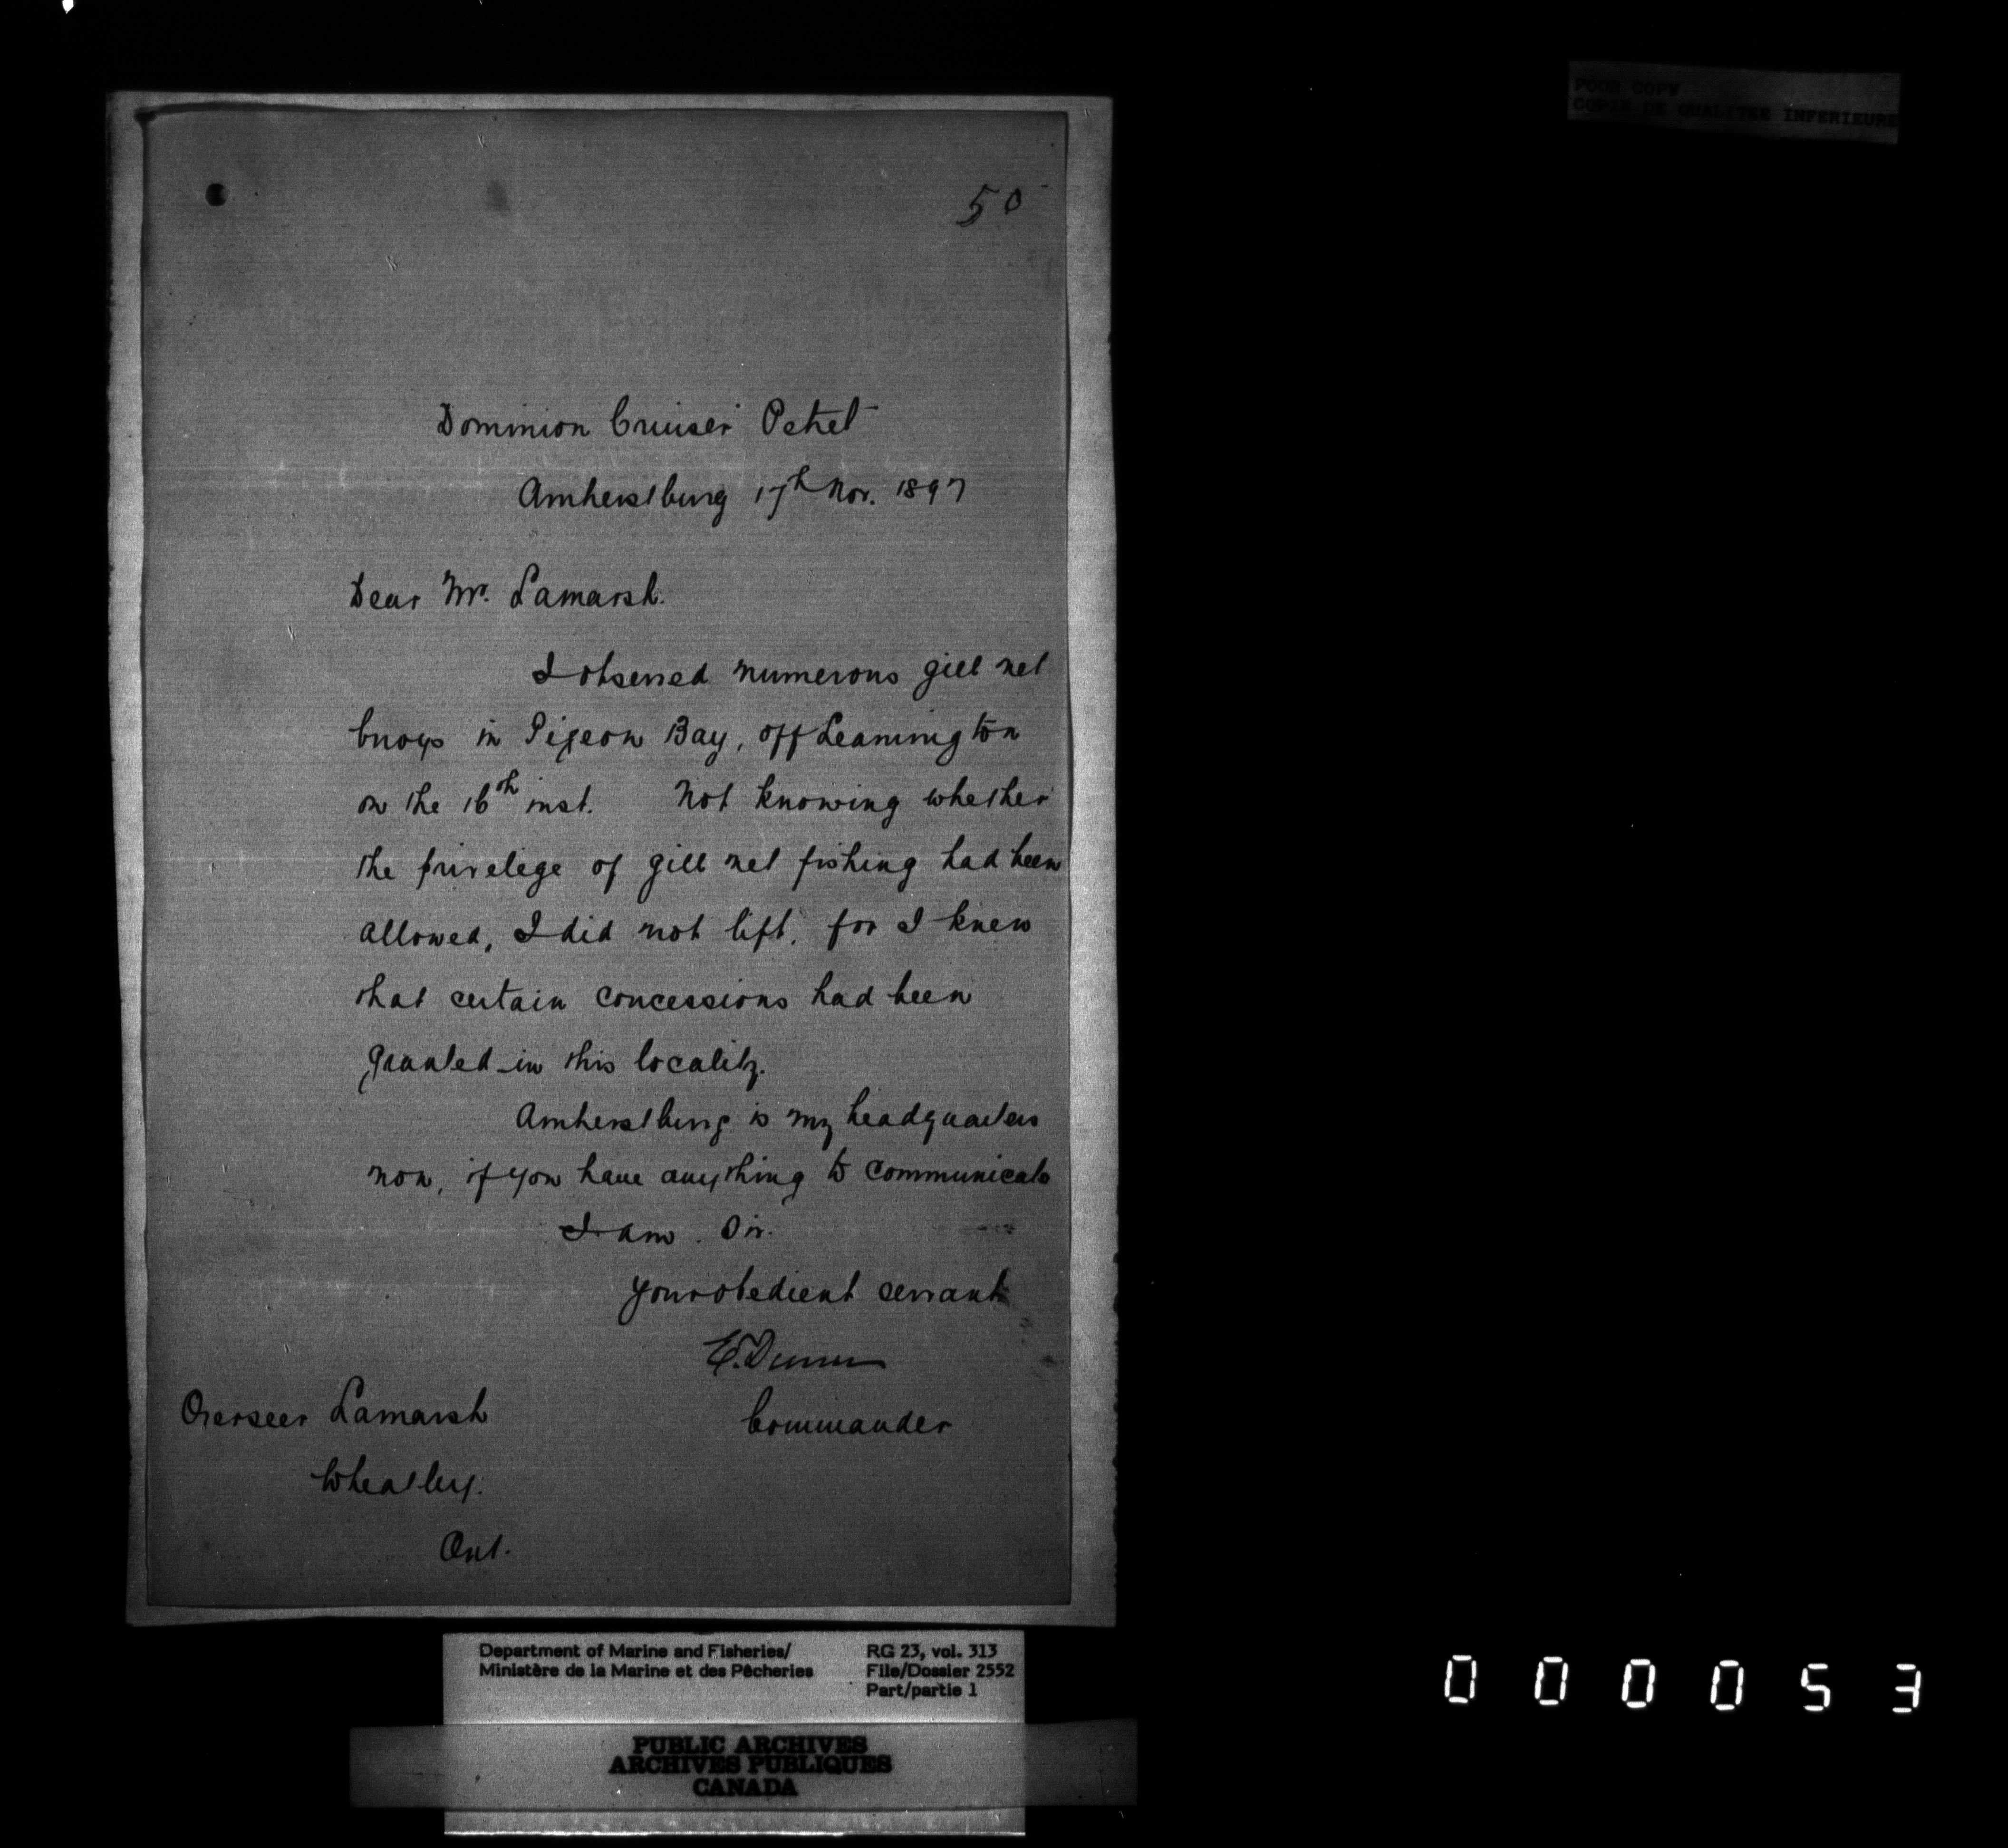 POOR COPY
COPIE DE QUALITEE INFERIEURE
50
Dominion Cruiser Petrel
Amherstburg 17th Nov. 1897
Dear Mr. Lamarsh.
I observed numerous gill net
buoys in Pigeon Bay, off Leamington
on the 16th inst. Not knowing whether
the privelege of gill net fishing had been
allowed, I did not lift, for I knew
that certain concessions had been
granted in this locality.
Amherstburg is my headquarters
now, if you have anything to communicate
I am. Sir.
your obedient servant
E. Dunn
Commander
Overseer Lamarsh
Wheatley.
Ont.
Department of Marine and Fisheries/
Ministère de la Marine et des Pêcheries
RG 23, vol. 313
File/Dossier 2552
Part/partie 1
PUBLIC ARCHIVES
ARCHIVES PUBLIQUES
CANADA
000053